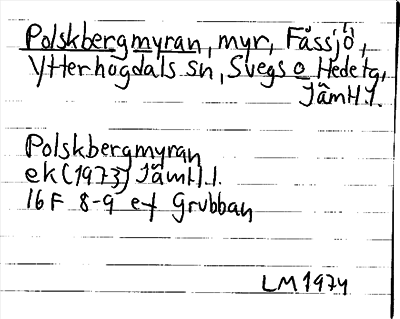 Polskbergmyran, myr, Fåssjö,
Ytterhogdals sn, Svegs o Hede tg,
Jämtl.l.
Polskbergmyran
ek (1973) Jämtl.l.
16F 8-9 ef Grubban
LM 1974